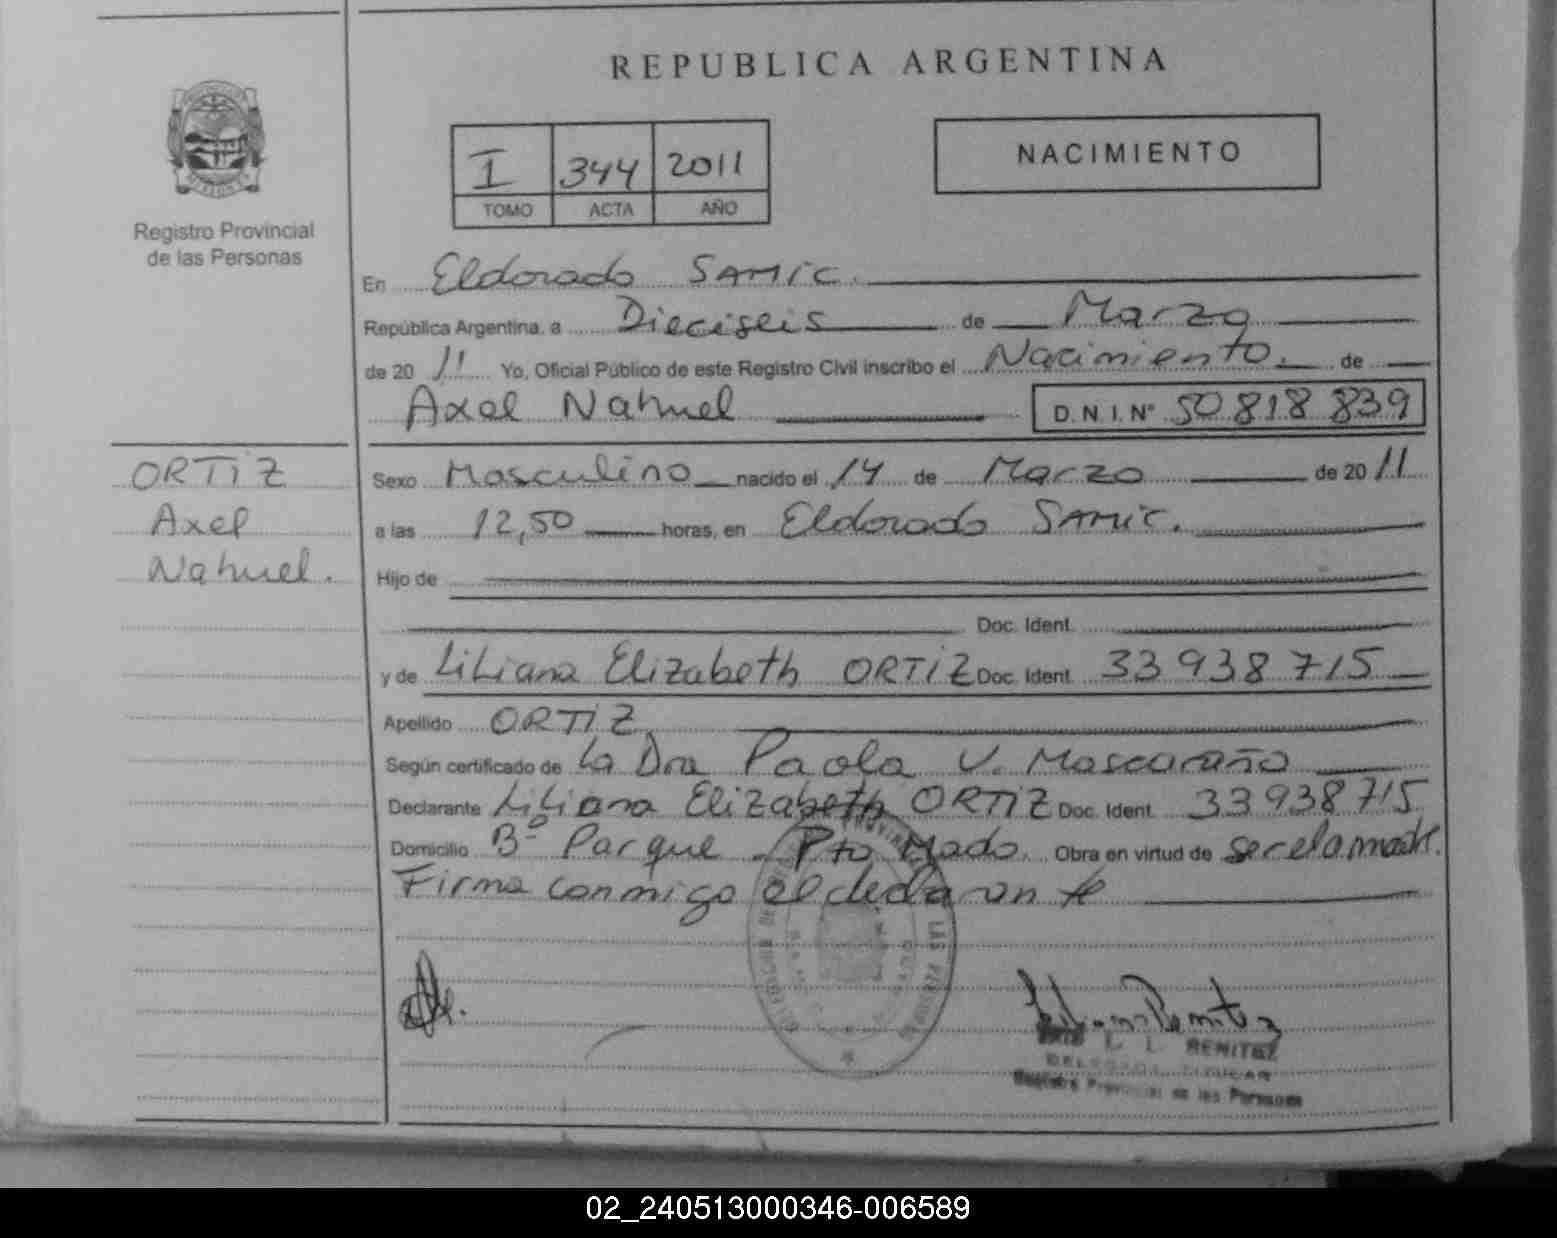 REPUBLICA ARGENTINA
I 344 2011
TOMO ACTA AÑO
NACIMIENTO
Registro Provincial
de las Personas
En Eldorado SAMIC.
República Argentina, a Dieciseis de Marzo
de 2011 Yo, Oficial Público de este Registro Civil inscribo el Nacimiento. de
Axel Nahuel D.N.I.Nº 50 818 839
ORTIZ
Axel
Nahuel.
Sexo Masculino nacido el 14 de Marzo de 2011
a las 12,50 horas, en Eldorado SAMIC.
Hijo de
Doc. Ident.
y de Liliana Elizabeth ORTIZ Doc. Ident. 33 938 715
Apellido ORTIZ
Según certificado de La Dra Paola V. Mascaraño
Declarante Liliana Elizabeth ORTIZ Doc. Ident. 33 938 715
Domicilio Bº Parque - Pto Mado. Obra en virtud de ser el a madre.
Firma conmigo el declarante
L. BENITEZ
DELEGADA TITULAR
Registro Provincial de las Personas
02_240513000346-006589